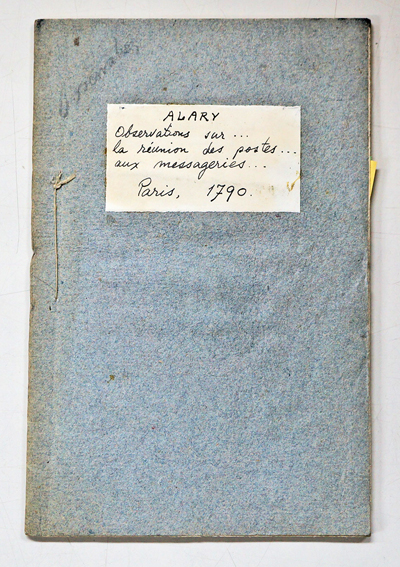 ALARY
Observations sur...
la réunion des postes...
aux messageries...
Paris, 1790.